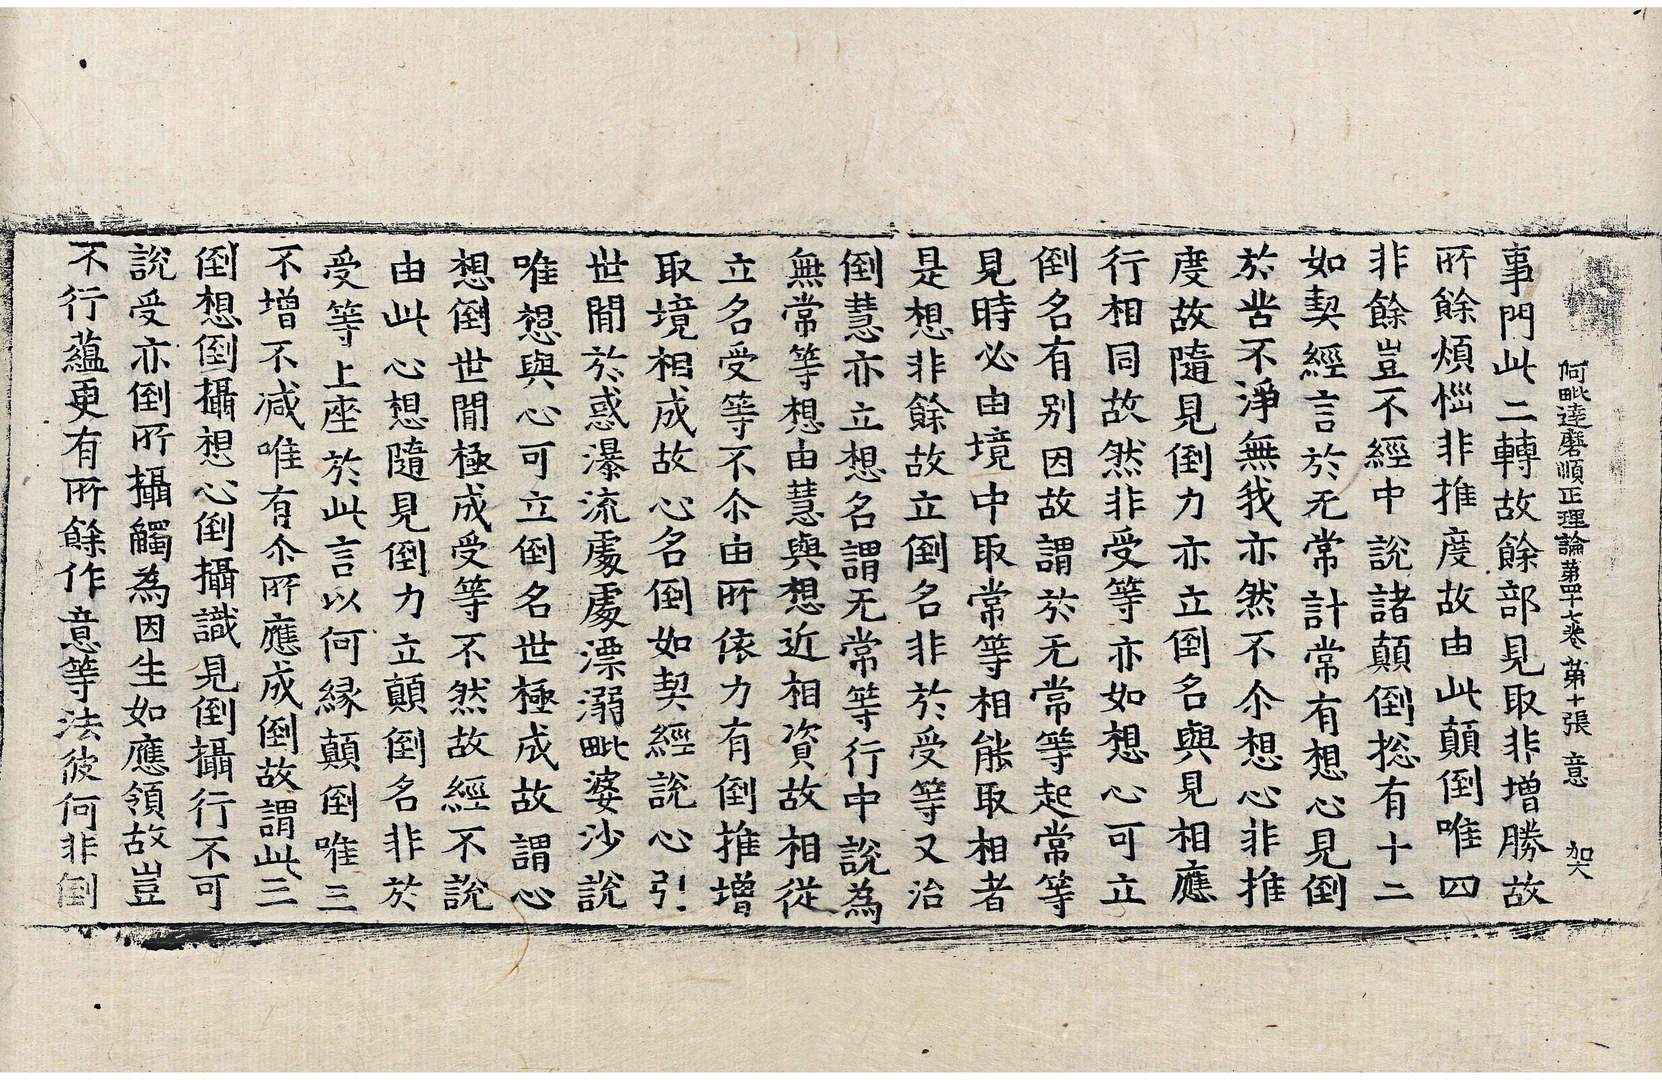 阿毗達磨順正理論第四十七卷 第十張 意 加六
事門此二轉故餘部見取非增勝故
所餘煩惱非推度故由此顛倒唯四
非餘豈不經中說諸顛倒捴有十二
如契經言於无常計常有想心見倒
於苦不淨無我亦然不尒想心非推
度故隨見倒力亦立倒名與見相應
行相同故然非受等亦如想心可立
倒名有別因故謂於无常等起常等
見時必由境中取常等相能取相者
是想非餘故立倒名非於受等又治
倒慧亦立想名謂无常等行中說為
無常等想由慧與想近相資故相從
立名受等不尒由所依力有倒推增
取境相成故心名倒如契經說心引
世間於惑瀑流處處漂溺毗婆沙說
唯想與心可立倒名世極成故謂心
想倒世間極成受等不然故經不說
由此心想隨見倒力立顛倒名非於
受等上座於此言以何緣顛倒唯三
不增不減唯有尒所應成倒故謂此三
倒想倒攝想心倒攝識見倒攝行不可
說受亦倒所攝觸為因生如應領故豈
不行蘊更有所餘作意等法彼何非倒